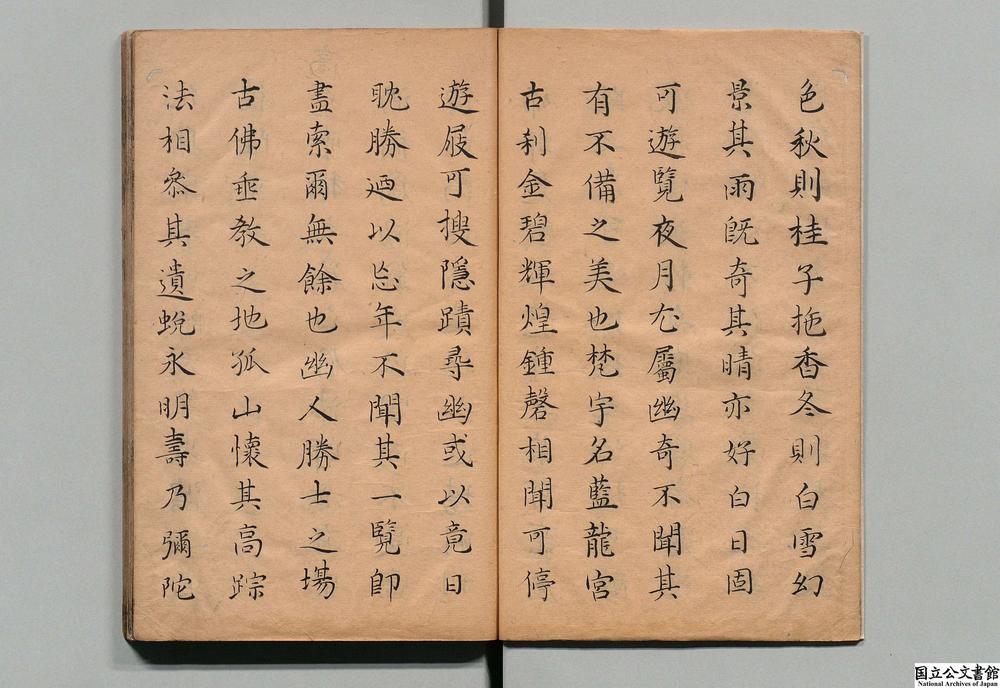 色秋則桂子拖香冬則白雪幻
景其雨既奇其晴亦好白日固
可遊覽夜月尤屬幽奇不聞其
有不備之美也梵宇名藍龍宮
古刹金碧輝煌鍾磬相聞可停
遊屐可搜隱蹟尋幽或以竟日
耽勝迺以忘年不聞其一覽卽
盡索爾無餘也幽人勝士之場
古佛垂教之地孤山懷其高踪
法相叅其遺蛻永明壽乃彌陀
国立公文書館
National Archives of Japan